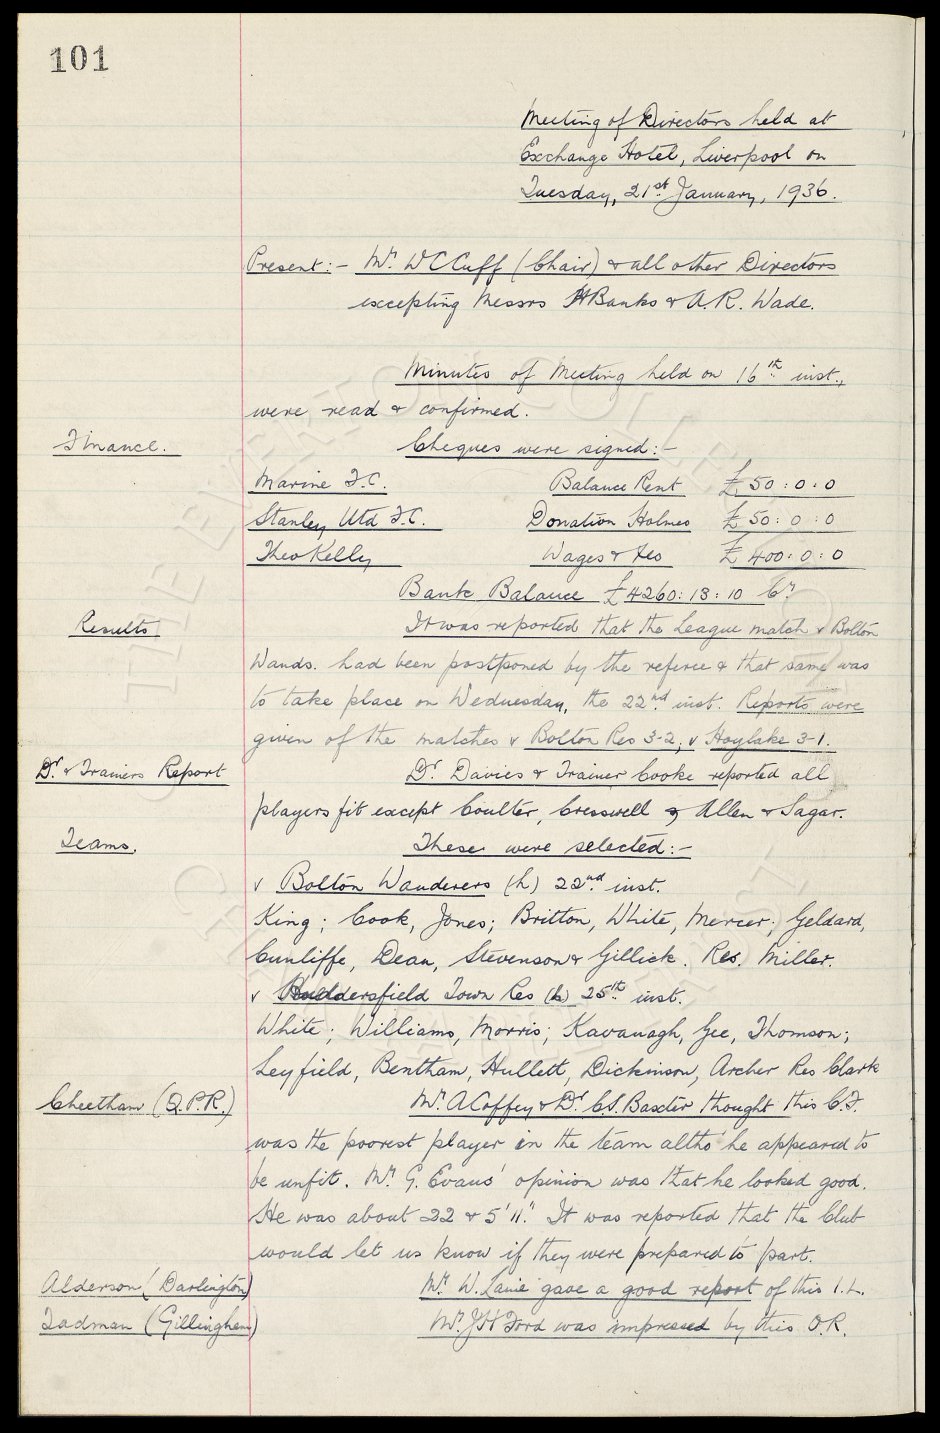 101
Meeting of Directors held at
Exchange Hotel, Liverpool on
Tuesday, 21st January, 1936.
Present:- Mr. W C Cuff (Chair) & all other Directors
excepting Messrs H Banks & A. R. Wade.
Minutes of Meeting held on 16th inst.,
were read & confirmed.
Finance. Cheques were signed:-
Marine F.C. Balance Rent £50:0:0
Stanley Utd F.C. Donation Holmes £50:0:0
Theo Kelly Wages & Fes £400:0:0
Bank Balance £4260:13:10 Cr
Results It was reported that the League match v Bolton
Wands. had been postponed by the referee & that same was
to take place on Wednesday, the 22nd inst. Reports were
given of the matches v Bolton Res 3-2, v Hoylake 3-1.
Dr. & Trainers Report Dr. Davies & Trainer Cooke reported all
players fit except Coulter, Cresswell, Allen & Sagar.
Teams. These were selected:-
v Bolton Wanderers (h) 22nd inst.
King; Cook, Jones; Britton, White, Mercer; Geldard,
Cunliffe, Dean, Stevenson & Gillick. Res. Miller.
v Huddersfield Town Res (h) 25th inst.
White; Williams, Morris; Kavanagh, Gee, Thomson;
Leyfield, Bentham, Hullett, Dickinson, Archer Res Clark
Cheetham (Q.P.R.) Mr A Coffey & Dr C.S. Baxter thought this C.F.
was the poorest player in the team altho' he appeared to
be unfit. Mr G. Evans' opinion was that he looked good.
He was about 22 & 5'11". It was reported that the Club
would let us know if they were prepared to part.
Alderson (Darlington) Mr. W. gave a good report of this I.L.
Tadman (Gillingham) Mr. J H Ford was impressed by this O.R.
THE EVERTON COLLECTION